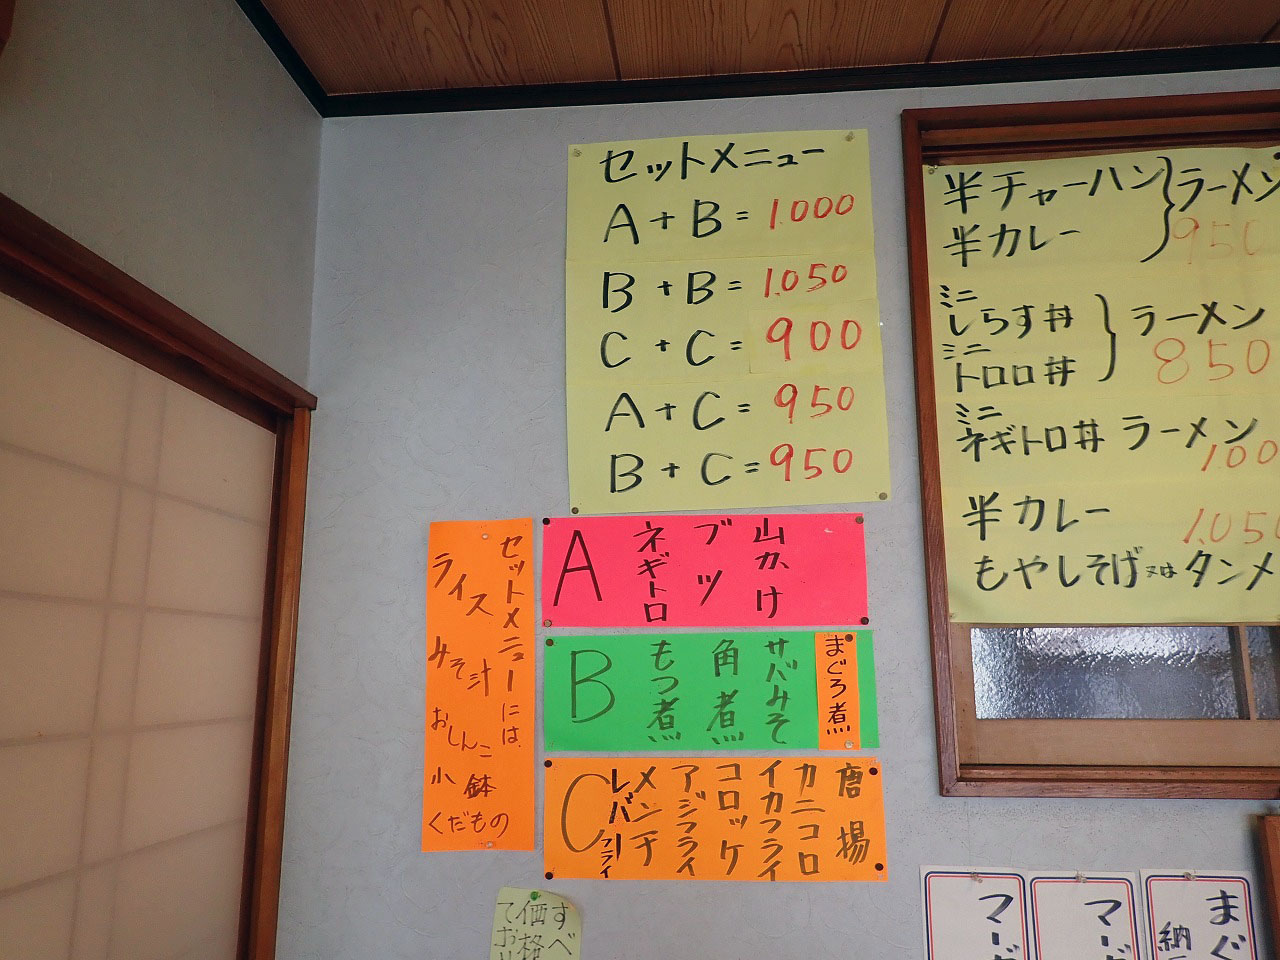 セットメニュー
A+B=1.000
B+B=1.050
C+C=900
A+C=950
B+C=950
半チャーハン
半カレー
ラーメン
950
ミニ
しらす丼
ミニ
トロロ丼
ラーメン
850
ミニ
ネギトロ丼 ラーメン
半カレー
1.050
もやしそば又はタンメ
セットメニューには、
ライス
みそ汁
おしんこ
小鉢
くだもの
A
山かけ
ブツ
ネギトロ
B
まぐろ煮
サバみそ
角煮
もつ煮
C
唐揚
カニコロ
イカフライ
コロッケ
アジフライ
メンチ
レバーフライ
すべ
価格
てお
まぐ
納
マーボ
マーボ